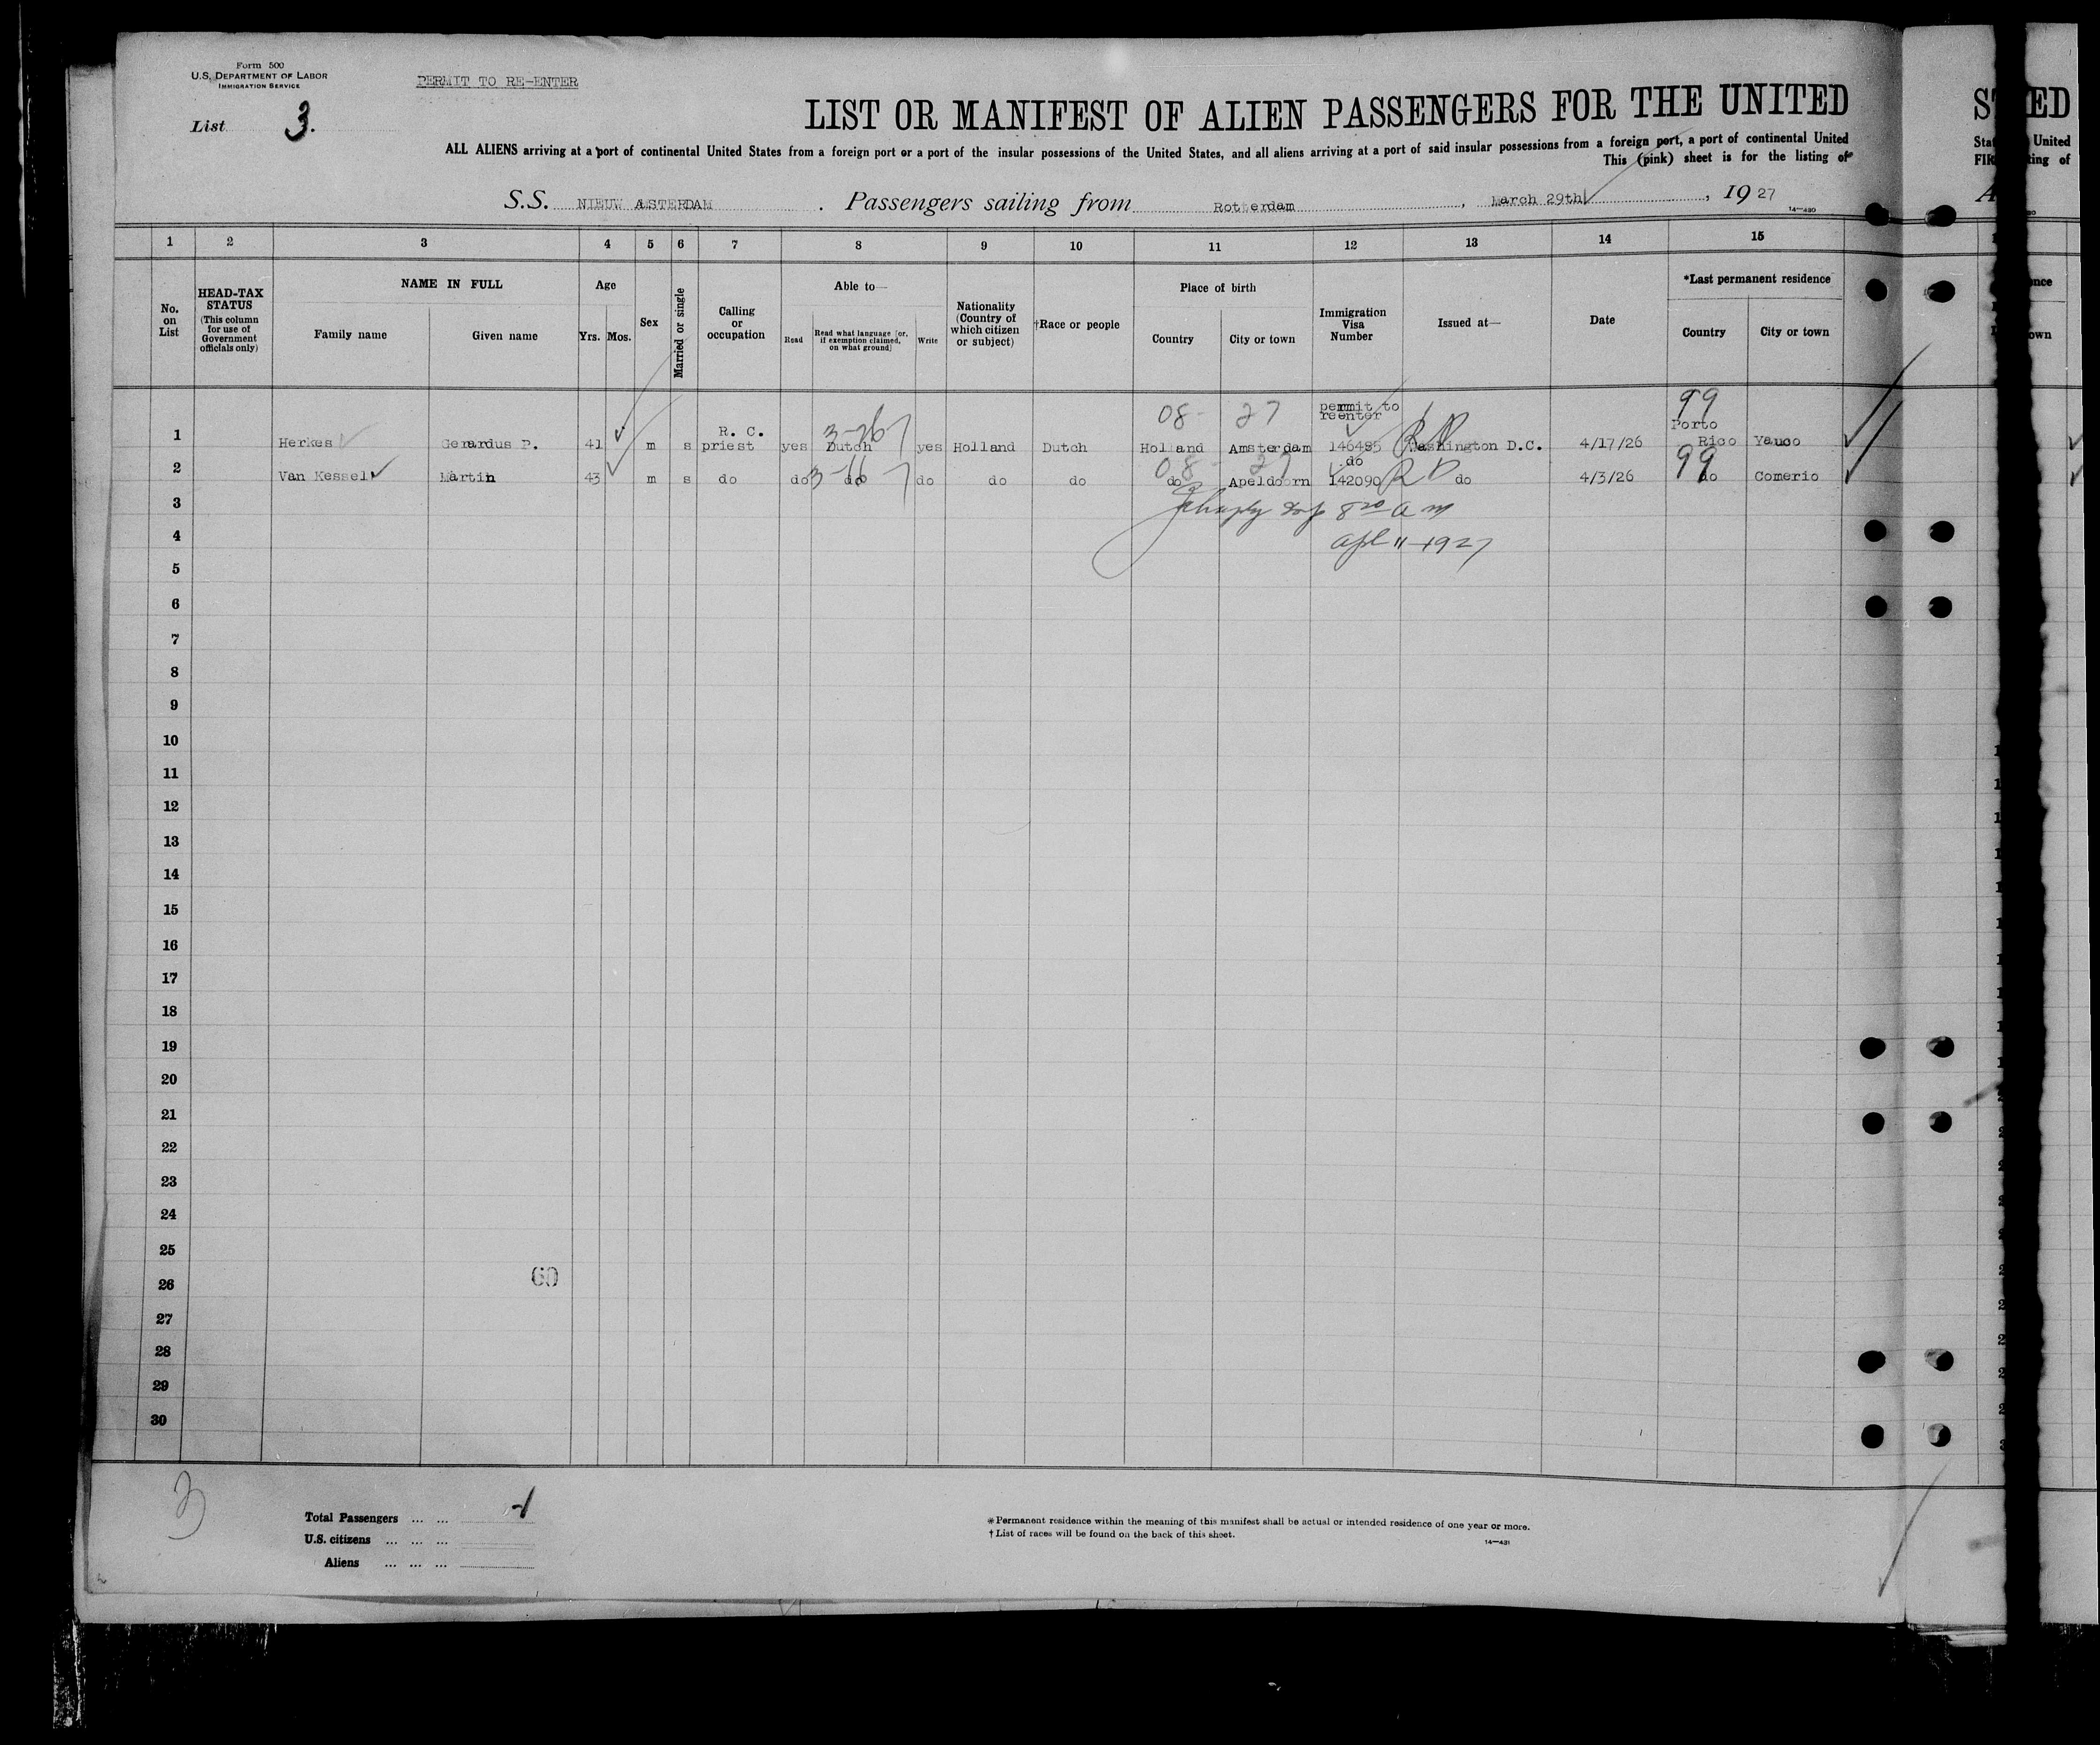 Form 500
U.S. DEPARTMENT OF LABOR
IMMIGRATION SERVICE
PERMIT TO RE-ENTER
List 3.
LIST OR MANIFEST OF ALIEN PASSENGERS FOR THE UNITED
ALL ALIENS arriving at a port of continental United States from a foreign port or a port of the insular possessions of the United States, and all aliens arriving at a port of said insular possessions from a foreign port, a port of continental United
This (pink) sheet is for the listing of
S.S. NIEUW AMSTERDAM. Passengers sailing from Rotterdam, March 29th, 1927
14—430
1 2 3 4 5 6 7 8 9 10 11 12 13 14 15
No. on List
HEAD-TAX STATUS (This column for use of Government officials only)
NAME IN FULL
Family name Given name
Age
Yrs. Mos.
Sex
Married or single
Calling or occupation
Able to—
Read Read what language [or, if exemption claimed, on what ground] Write
Nationality (Country of which citizen or subject)
†Race or people
Place of birth
Country City or town
Immigration Visa Number
Issued at—
Date
*Last permanent residence
Country City or town
08- 27 permit to reenter 99
1 Herkes Gerardus P. 41 m s R. C. priest yes Dutch yes Holland Dutch Holland Amsterdam 146485 Washington D.C. 4/17/26 Porto Rico Yauco
3-26
08- 27 do 99
2 Van Kessel Martin 43 m s do do do do do do do Apeldoorn 142090 do 4/3/26 do Comerio
3-66
3
4 Apl 11-1927
5
6
7
8
9
10
11
12
13
14
15
16
17
18
19
20
21
22
23
24
25
26
60
27
28
29
30
3
Total Passengers ... ...
U.S. citizens ... ... ...
Aliens ... ... ...
*Permanent residence within the meaning of this manifest shall be actual or intended residence of one year or more.
†List of races will be found on the back of this sheet.
14—431